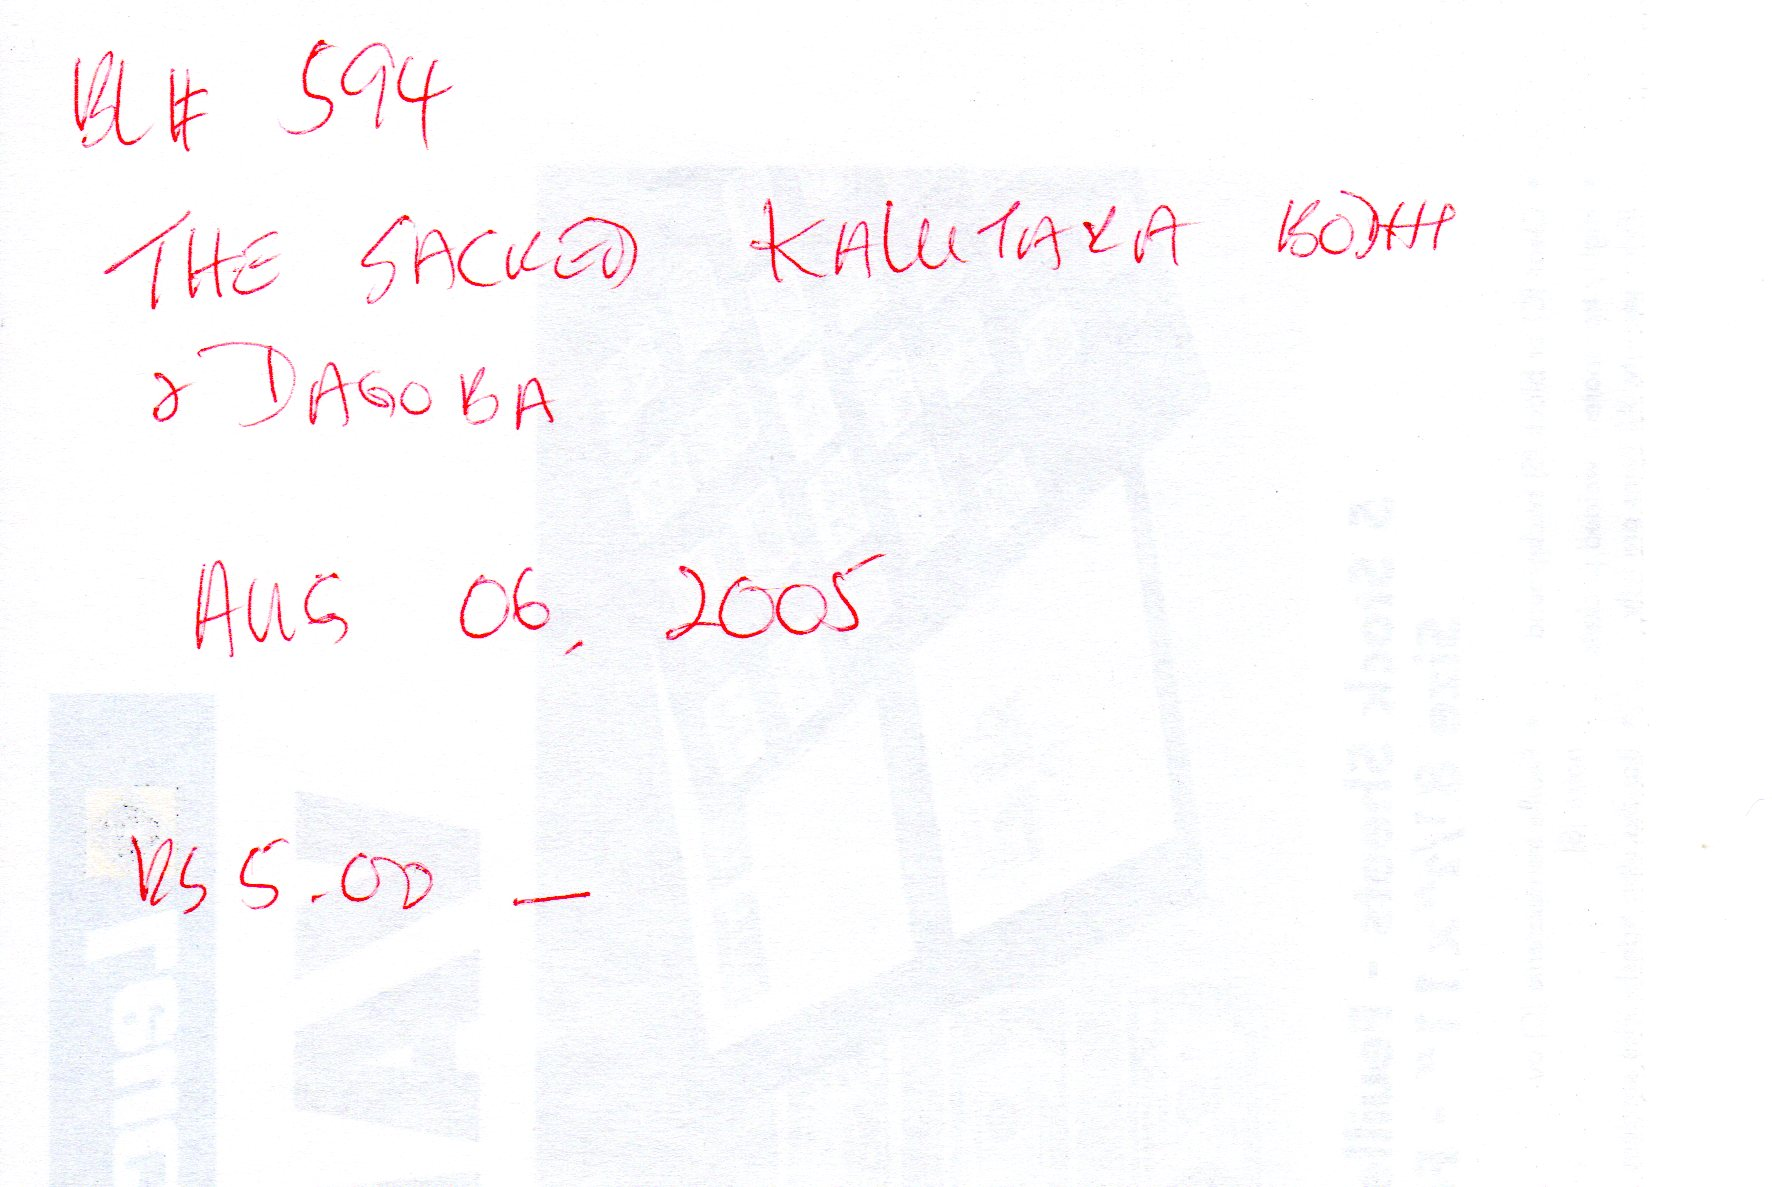 BL# 594
THE SACRED KALUTARA BODHI
& DAGOBA
AUG 06, 2005
RS 5.00 —